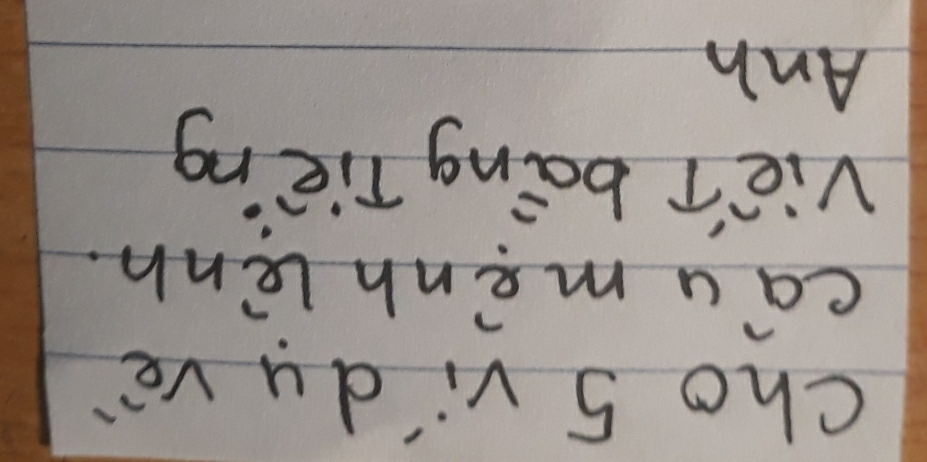 Cho 5 ví dụ về
câu mệnh lệnh.
Viết bằng Tiếng
Anh